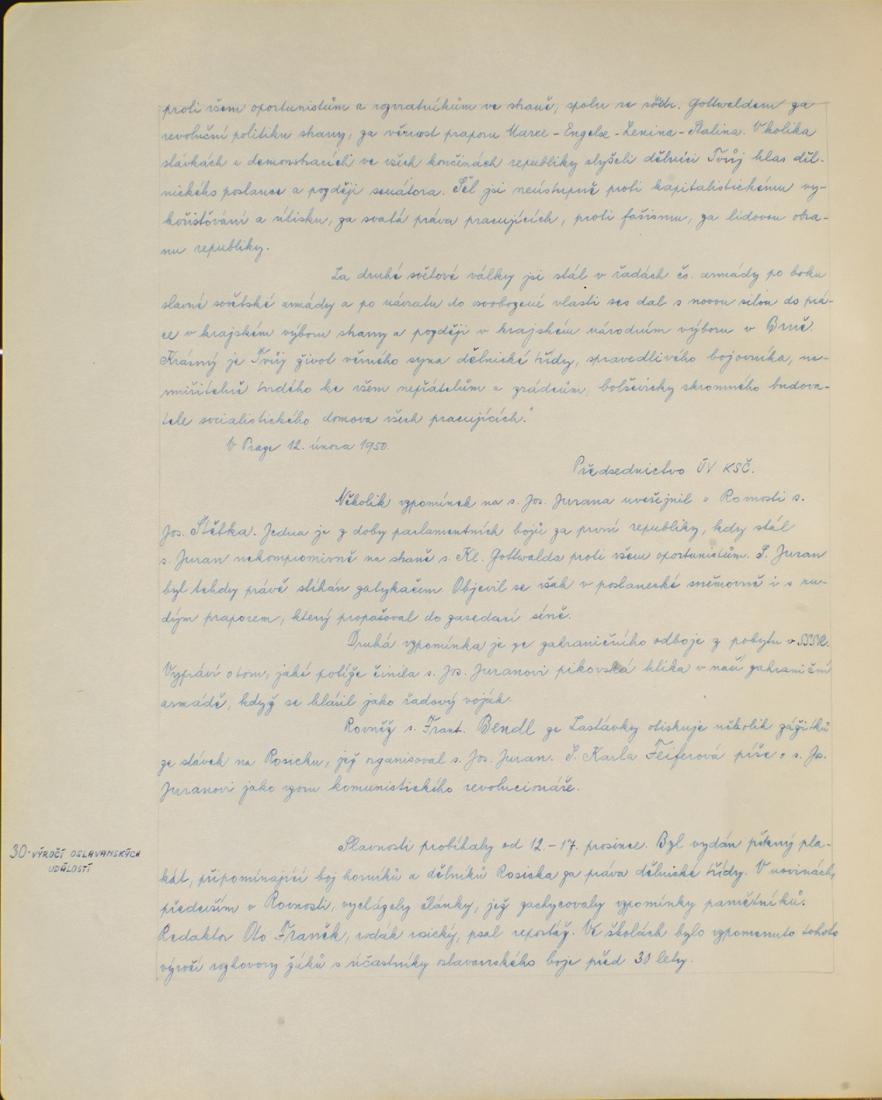 proti všem oportunistům a rozvratníkům ve straně, spolu se soudr. Gottwaldem za
revoluční politiku strany, za věrnost praporu Marxe - Engelse - Lenina - Stalina. V kolika
stávkách a demonstracích ve všech končinách republiky slyšeli dělníci Tvůj hlas děl-
nického poslance a později senátora. Šel jsi neústupně proti kapitalistickému vy-
kořisťování a útisku, za svatá práva pracujících, proti fašismu, za lidovou obra-
nu republiky.
Za druhé světové války jsi stál v řadách čs. armády po boku
slavné sovětské armády a po návratu do osvobozené vlasti ses dal s novou silou do prá-
ce v krajském výboru strany a později v krajském národním výboru v Brně.
Krásný je Tvůj život věrného syna dělnické třídy, spravedlivého bojovníka, ne-
smiřitelně tvrdého ke všem nepřátelům a zrádcům, bolševicky skromného budova-
tele socialistického domova všech pracujících."
V Praze 12. února 1950.
Předsednictvo ÚV KSČ.
Několik vzpomínek na s. Jos. Jurana uveřejnil v Rovnosti s.
Jos. Štětka. Jedna je z doby parlamentních bojů za první republiky, kdy stál
s. Juran nekompromisně na straně s. Kl. Gottwalda proti všem oportunistům. S. Juran
byl tehdy právě stíhán zatykačem. Objevil se však v poslanecké sněmovně i s ru-
dým praporem, který propašoval do zasedací síně.
Druhá vzpomínka je ze zahraničního odboje z pobytu v SSSR.
Vypráví o tom, jaké potíže činila s. Jos. Juranovi pikovská klika v naší zahraniční
armádě, když se hlásil jako řadový voják.
Rovněž s. Frant. Bendl ze Zastávky otiskuje několik zážitků
ze stávek na Rosicku, jež organisoval s. Jos. Juran. S. Karla Fleiferová píše o s. Jos.
Juranovi jako vzoru komunistického revolucionáře.
30. VÝROČÍ OSLAVANSKÝCH
UDÁLOSTÍ
Slavnosti probíhaly od 12. - 17. prosince. Byl vydán pěkný pla-
kát, připomínající boj horníků a dělníků Rosicka za práva dělnické třídy. V novinách,
především v Rovnosti, vycházely články, jež zachycovaly vzpomínky pamětníků.
Redaktor Oto Franěk, rodák rosický, psal reportáž. Ve školách bylo vzpomenuto tohoto
výročí rozhovory žáků s účastníky oslavanského boje před 30 lety.